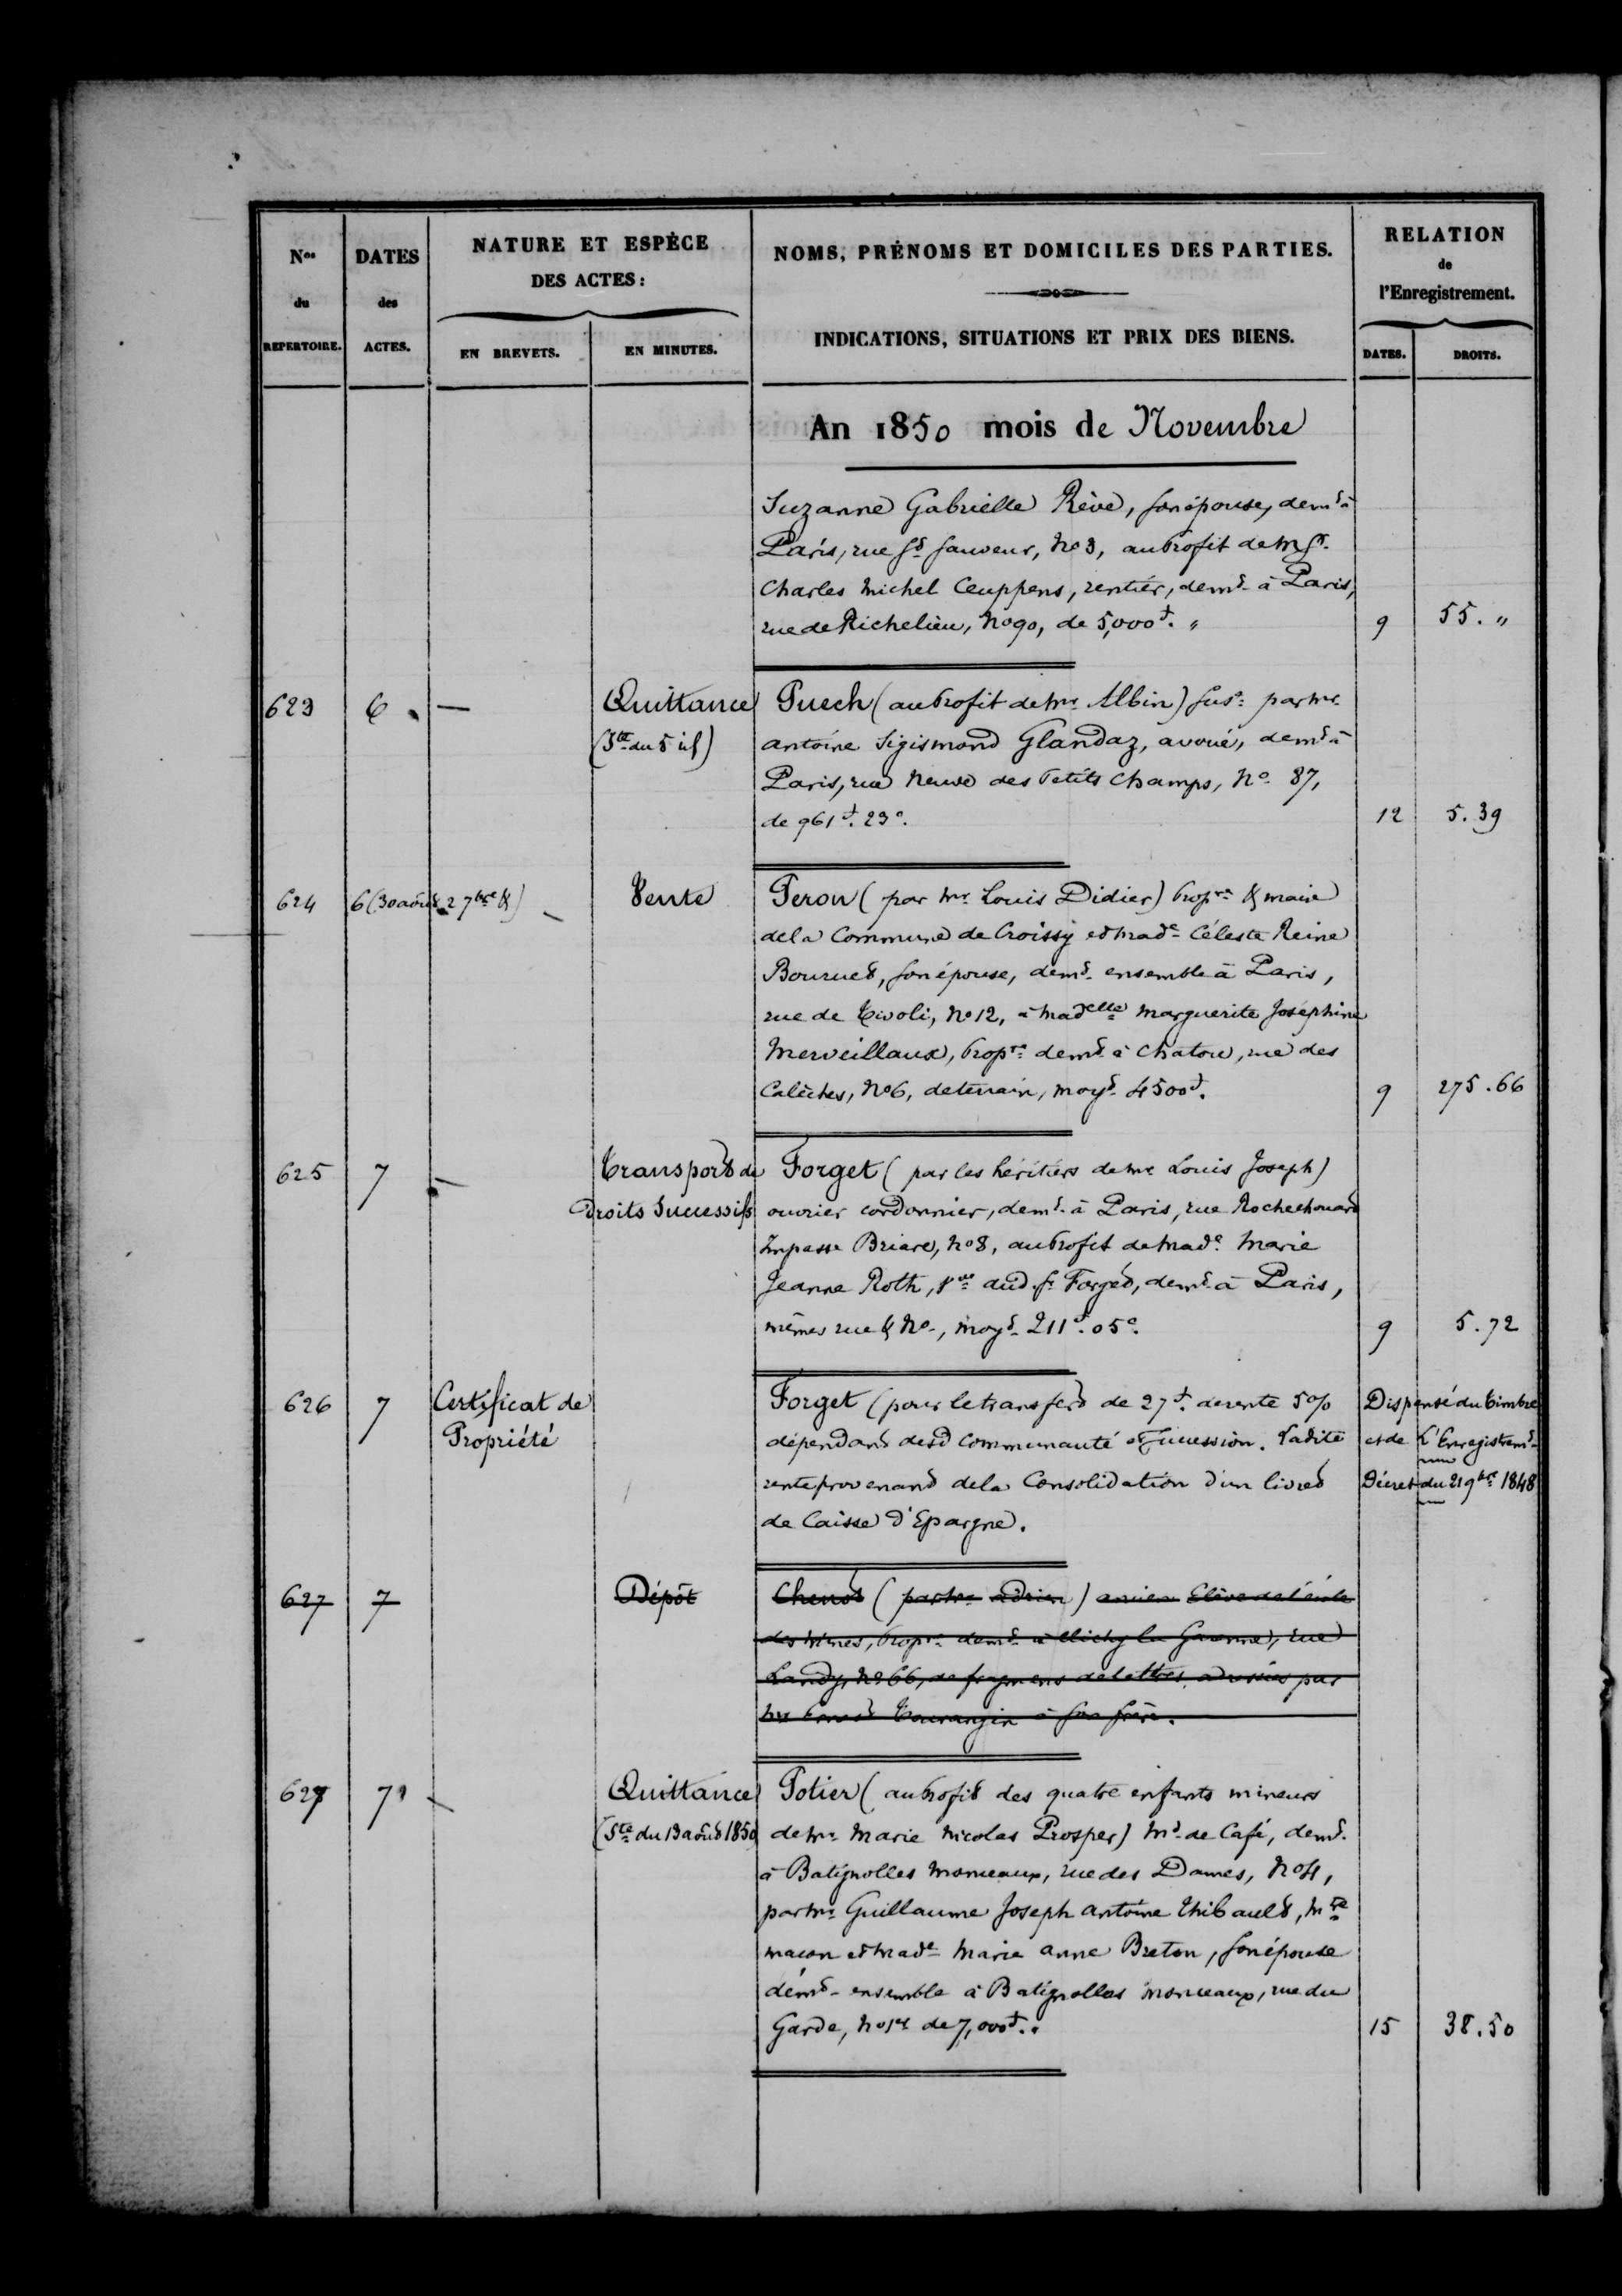 Nos du REPERTOIRE.
DATES des ACTES.
NATURE ET ESPÈCE
DES ACTES :
EN BREVETS.
EN MINUTES.
NOMS, PRÉNOMS ET DOMICILES DES PARTIES.
INDICATIONS, SITUATIONS ET PRIX DES BIENS.
RELATION
de
l'Enregistrement.
DATES.
DROITS.
An 1850 mois de Novembre
Suzanne Gabrielle Rève, son épouse, demt à
Paris, rue St Sauveur, No 3, au profit de Mr
Charles Michel Ceuppens, rentier, demt à Paris,
rue de Richelieu, No 90, de 5,000f. " 9 55. "
623 6. — Quittance Puech (au profit de Mr Albin) par Mr
(Ste du 5 id) antoine Sigismond Glandaz, avoué, demt à
Paris, rue Neuve des Petits Champs, No 87,
de 961f. 23c. 12 5.39
624 6 (30 août & 2 7bre &) — Vente Peron (par Mr Louis Didier) propre & maire
de la Commune de Croissy et Made Céleste Reine
Bouruet, son épouse, demt ensemble à Paris,
rue de Tivoli, No 12, à Madelle Marguerite Joséphine
Merveillaux, propre demt à Chatou, rue des
Calèches, No 6, de terrain, moyt 4500f. 9 275.66
625 7 — Transport de Forget (par les héritiers de Mr Louis Joseph)
Droits Successifs ouvrier cordonnier, demt à Paris, rue Rochechouard
Impasse Briare, No 8, au profit de Made Marie
Jeanne Roth, Vve dud. sr Forget, demt à Paris,
mêmes rue & No, moyt 211f. 05c. 9 5.72
626 7 Certificat de Forget (pour le transfert de 27f. de rente 5% Dispensé du timbre
Propriété dépendant desd communauté et Succession. Ladite et de L'Enregistremt
rente provenant de la Consolidation d'un livret Décret du 21 9bre 1848
de Caisse d'Epargne.
627 7 Dépôt Chenot (par Mr adrien) ancien Elève de l'école
des Mines, propre demt à Clichy la Garenne, rue
Landy, No 66, de fragmens de lettres adressées par
Mr Tourangin à son frère.
627 7 — Quittance Potier (au profit des quatre enfants mineurs
(Ste du 13 août 1850) de Mr Marie Nicolas Prosper) Md de Café, demt
à Batignolles Monceaux, rue des Dames, No 4,
par Mr Guillaume Joseph Antoine Thibault, Mtre
macon et Made Marie Anne Breton, son épouse
demt ensemble à Batignolles Monceaux, rue du
Garde, No de 7,000f. " 15 38.50